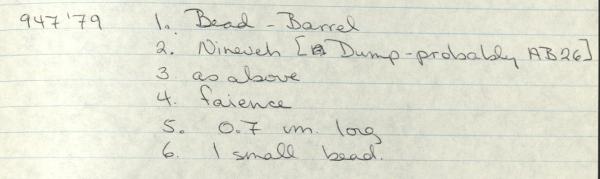 947'79 1. Bead - Barrel
2. Nineveh [Dump - probably AB26]
3 as above
4. faience
5. 0.7 cm. long
6. 1 small bead.